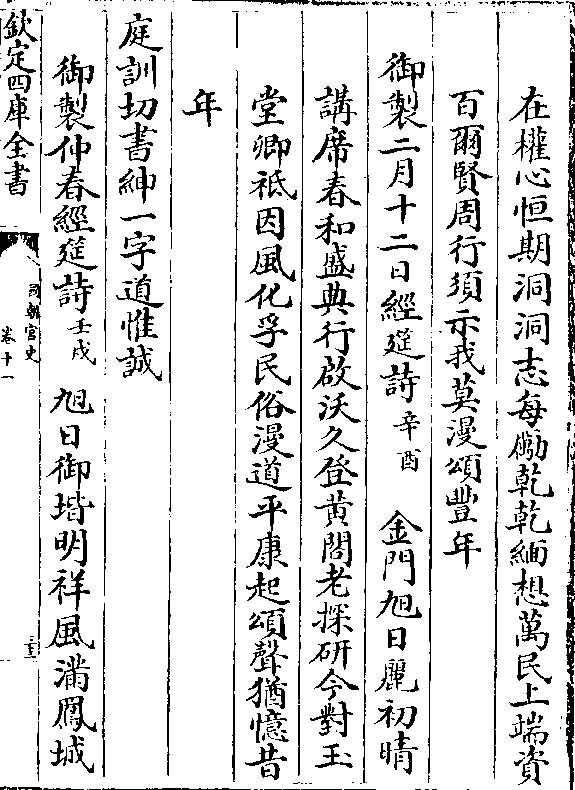 在權心恒期洞洞志每勵乾乾緬想萬民上端資
百爾賢周行須示我莫漫頌豐年
御製二月十二日經筵詩辛酉 金門旭日麗初晴
講席春和盛典行啟沃久登黃閣老探研今對玉
堂卿祗因風化孚民俗漫道平康起頌聲猶憶昔
年
庭訓切書紳一字道惟誠
御製仲春經筵詩壬戌 旭日御堦明祥風滿鳳城
欽定四庫全書
國朝宮史
卷十一
三十三